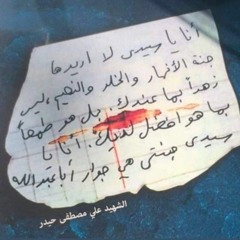 أنا يا سيدي لا اريدها
جنة الأنهار والخلد والنعيم، ليس
زهداً بما عندك، بل هو طمعاً
بما هو افضل لديك. انا يا
سيدي جنتي هي جوار أبا عبدالله
الشهيد علي مصطفى حيدر